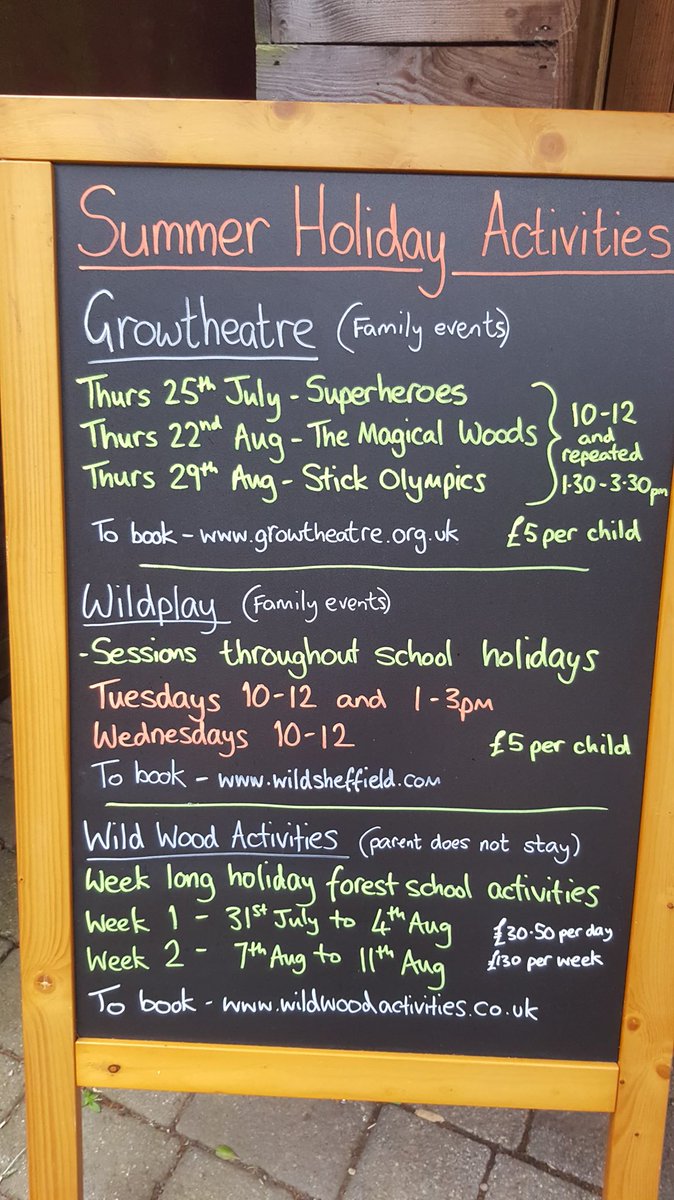 Summer Holiday Activities
Growtheatre (Family events)
Thurs 25th July - Superheroes
Thurs 22nd Aug - The Magical Woods
Thurs 29th Aug - Stick Olympics
10-12
and
repeated
1.30-3.30pm
To book - www.growtheatre.org.uk £5 per child
Wildplay (Family events)
- Sessions throughout school holidays
Tuesdays 10-12 and 1-3pm
Wednesdays 10-12 £5 per child
To book - www.wildsheffield.com
Wild Wood Activities (parent does not stay)
Week long holiday forest school activities
Week 1 - 31st July to 4th Aug £30.50 per day
Week 2 - 7th Aug to 11th Aug £130 per week
To book - www.wildwoodactivities.co.uk